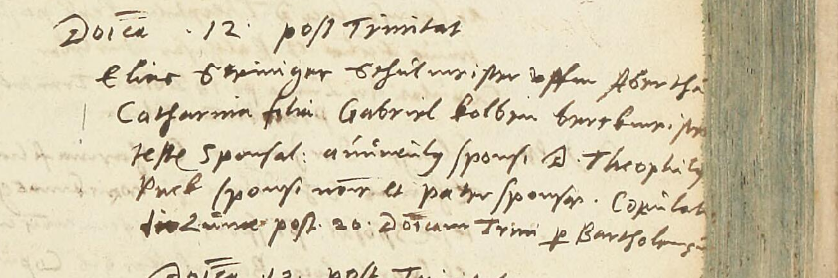 Doîca . 12 . post Trinitat
Elias Steiniger Schulmeister uffm Abertha
Catharina filia Gabriel kolben berckmeister
teste Sponsal: auunculus sponsi D. Theophilus
Puek sponsi noîe et pater sponsae. Copulat
die Lunae post. 20. Doîcam Trini p Bartholomeu
Doîca 13. post Tri